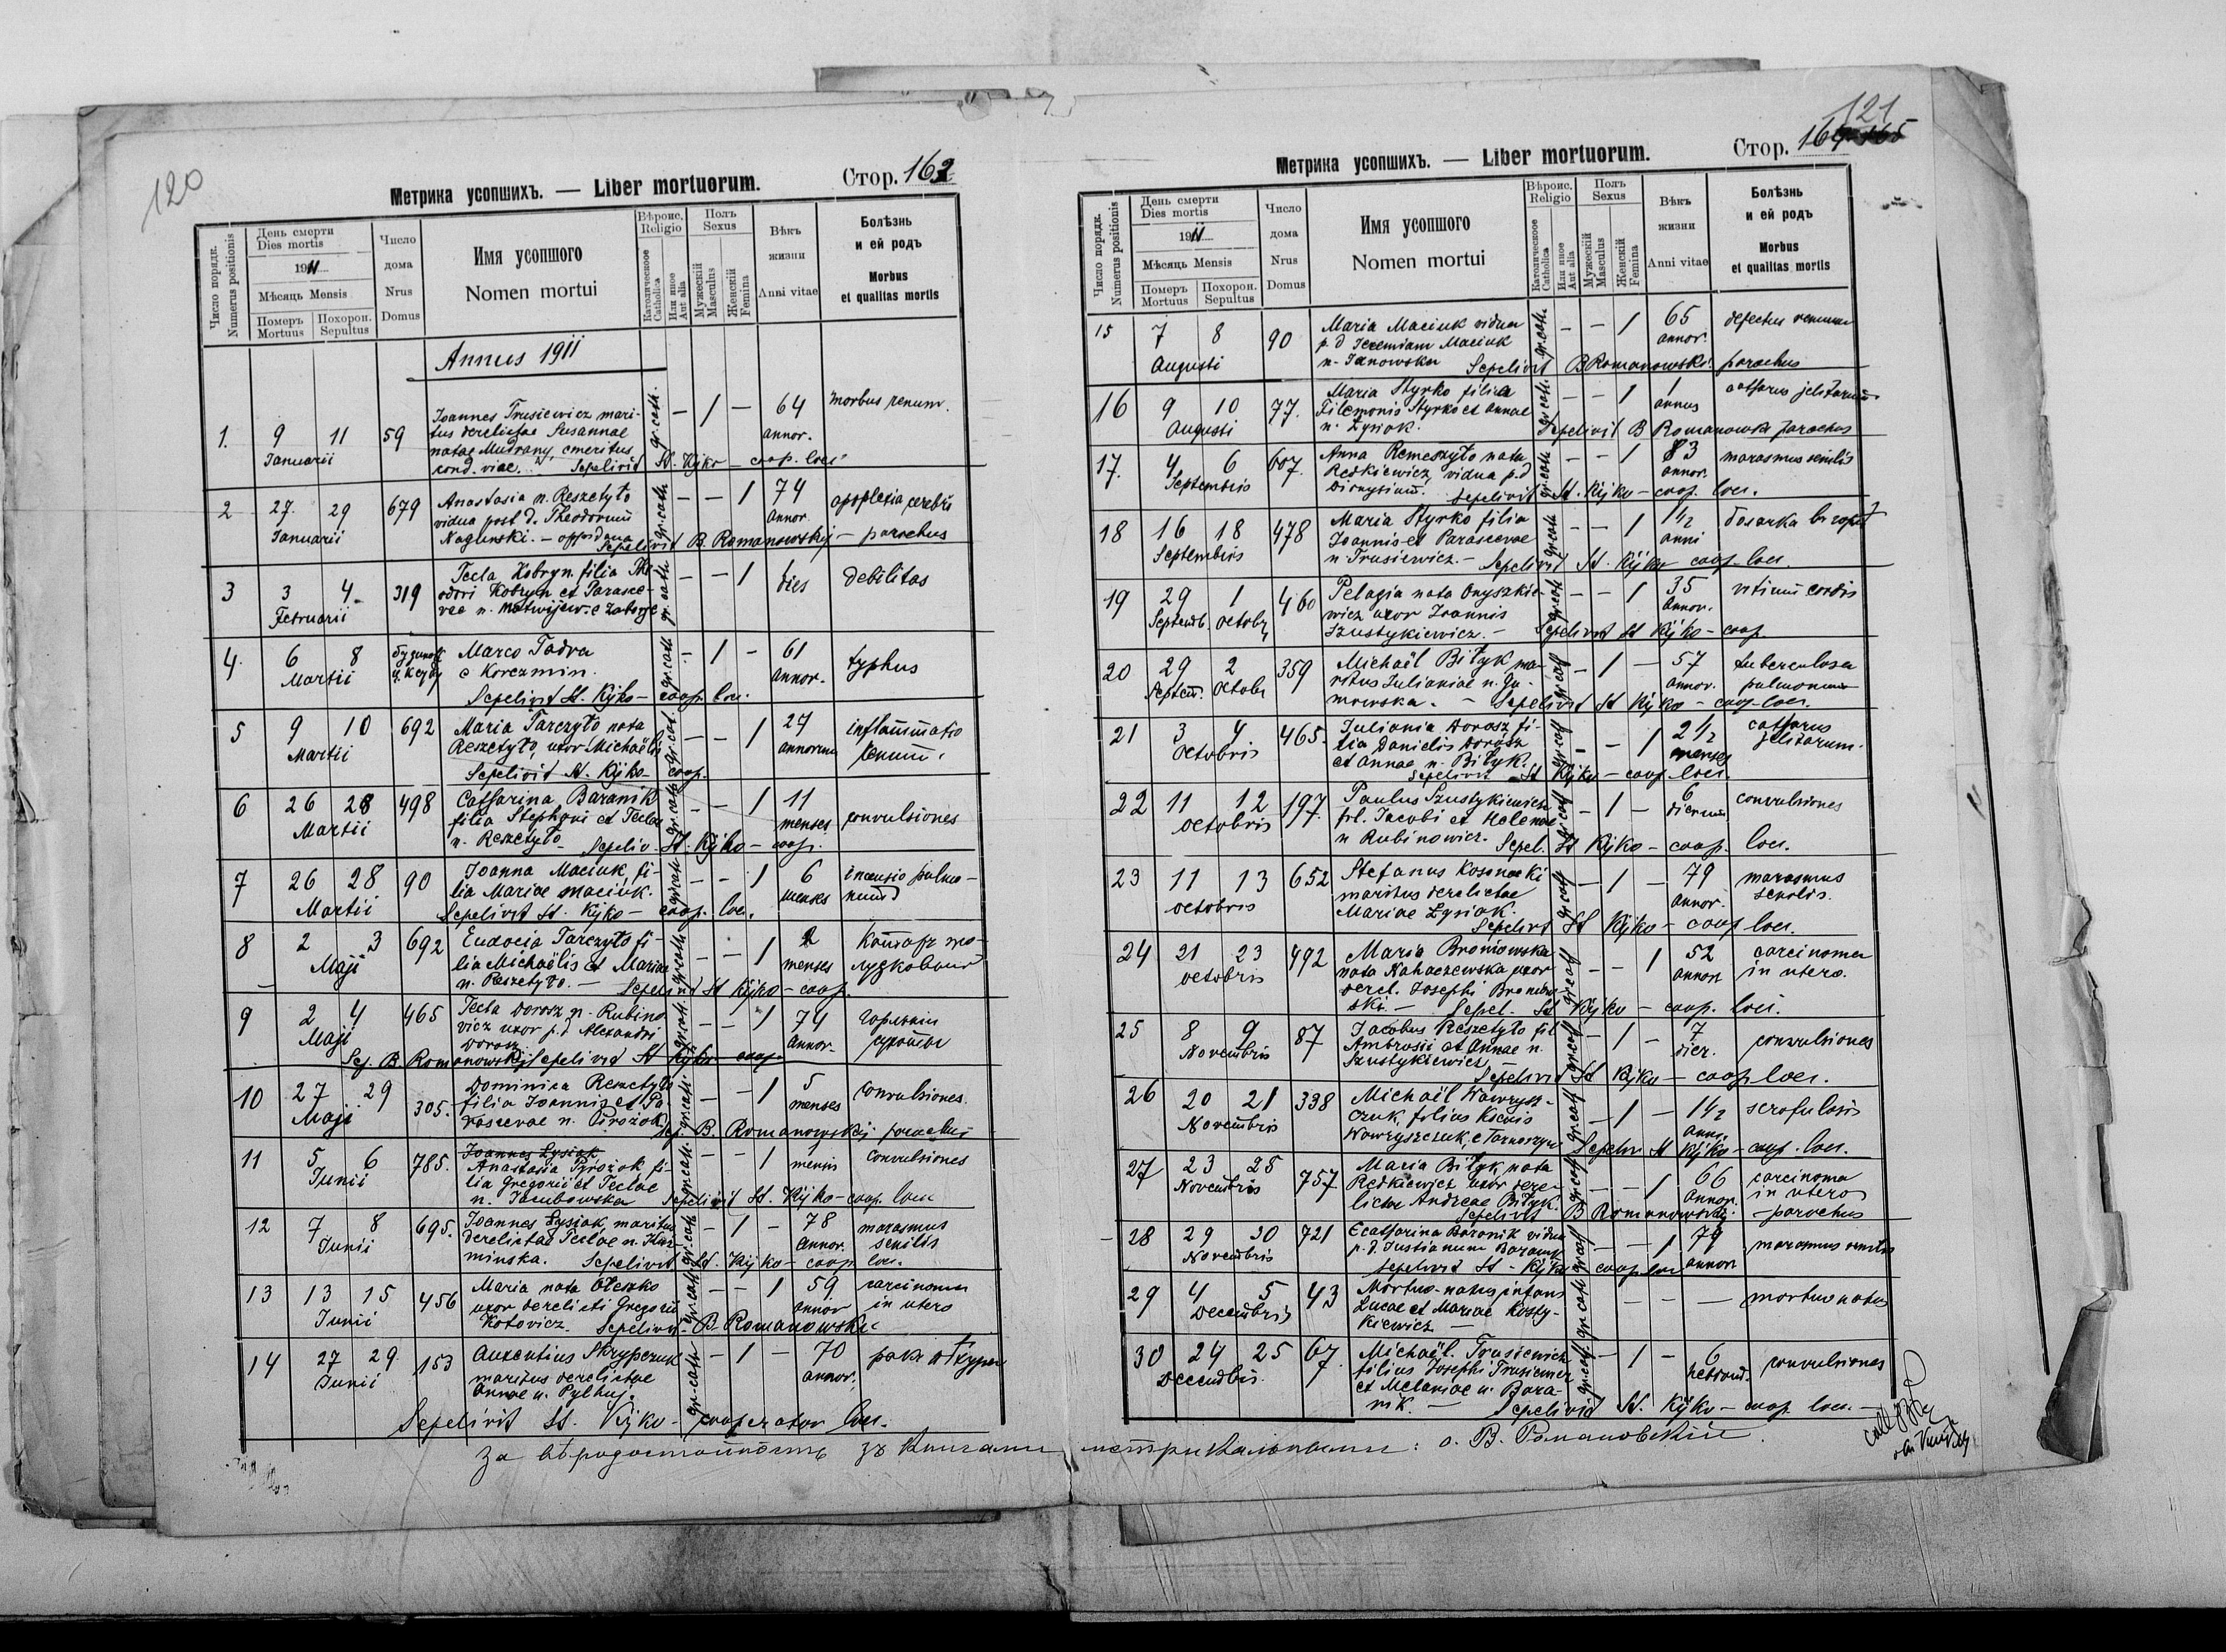 120
Метрика усопшихъ. — Liber mortuorum.
Стор. 162
Число порядк. Numerus positionis
День смерти Dies mortis
1911
Мѣсяць Mensis
Померъ Mortuus
Похорон. Sepultus
Число дома Nrus Domus
Имя усопшого Nomen mortui
Вѣроис. Religio
Католическое Catholica
Или иное Aut alia
Полъ Sexus
Мужескій Masculus
Женскій Femina
Вѣкъ жизни Anni vitae
Болѣзнь и ей родъ Morbus et qualitas mortis
Annus 1911
1. 9 11 Januarii 59 gr. cath. — 1 — 64 annor. morbus renum.
Joannes Trusiewicz mari-
tus derelictae Susannae
natae Mudrany, emeritus
cond. viae. Sepelivit St. Kijko — coop. loci
2 27. 29 Januarii 679 gr. cath. — — 1 74 annor. apoplexia cerebri
Anastasia n. Reszetyło
vidua post d. Theodorum
Nagurski. — oppidana
Sepelivit B. Romanowskij — parochus
3 3 4. Februarii 319 gr. cath. — — 1 dies debilitas
Tecla Kobryn filia The-
odori Kobryn et Parasce-
vae n. Matwijew. e Zaborje
4. 6 8 Martii gr. cath. — 1 — 61 annor. typhus
Marco Tadra
e Korczmin.
Sepelivit St. Kijko — coop. loci.
5 9 10 Martii 692 gr. cat. — — 1 27 annorum inflammatio renum.
Maria Tarczyło nata
Reszetyło, uxor Michaëlis
Sepelivit St. Kijko — coop.
6 26 28 Martii 498 gr. cath. — — 1 11 menses convulsiones
Catharina Baranik
filia Stephani et Teclae
n. Reszetyło — Sepeliv. St. Kijko — coop.
7 26 28 Martii 90 gr. cath. — — 1 6 menses
Joanna Maciuk, fi-
lia Mariae Maciuk.
Sepelivit St. Kijko — coop. loci.
8 2 3 Maji 692 gr. cath. — — 1 2 menses
Eudocia Tarczyło fi-
lia Michaëlis et Mariae
n. Reszetyło. — Sepelivit St Kijko — coop.
9 2 4 Maji 465 gr. cath. — — 1 74 annor.
Tecla Dorosz n. Rubino-
wicz uxor p. d. Alexandri
Dorosz
Sep. B. Romanowskij Sepelivit St Kijko coop.
10 27 29 Maji 305. gr. cath. — — 1 5 menses convulsiones.
Dominica Reszetyło
filia Joannis et Pa-
rascevae n. Pirożok
Sep. B. Romanowskij parochus
11 5 6 Junii 785. gr. cath. — — 1 mensis convulsiones
Joannes Łysiak
Anastasia Pirożok fi-
lia Gregorii et Teclae
n. Jacubowska Sepelivit St. Kijko — coop. loci
12 7 8 Junii 695. gr. cath. — 1 — 78 annor. marasmus senilis
Joannes Łysiak, maritus
derelictae Teclae n. Kuz-
minska. Sepelivit St. Kijko — coop loci.
13 13 15 Junii 456 gr. cath. — — 1 59 annor carcinoma in utero
Maria nata Oleszko
uxor derelicti Gregorii
Kotowicz. Sepelivit B. Romanowski
14 27 29. Junii 153 gr. cath. — 1 — 70 annor.
Auxentius Skrypczuk
maritus derelictae
Annae n. Pylhuj.
Sepelivit St. Kijko — cooperator loci.
121
Метрика усопшихъ. — Liber mortuorum.
Стор. 164
Число порядк. Numerus positionis
День смерти Dies mortis
1911
Мѣсяць Mensis
Померъ Mortuus
Похорон. Sepultus
Число дома Nrus Domus
Имя усопшого Nomen mortui
Вѣроис. Religio
Католическое Catholica
Или иное Aut alia
Полъ Sexus
Мужескій Masculus
Женскій Femina
Вѣкъ жизни Anni vitae
Болѣзнь и ей родъ Morbus et qualitas mortis
15 7 8 Augusti 90 gr. cath. — — 1 65 annor. defectus renum
Maria Maciuk vidua
p. d Jeremiam Maciuk
n. Janowska Sepelivit B Romanowski parochus
16 9 10 Augusti 77. gr. cath. — — 1 1 annus
Maria Styrko filia
Filemonis Styrko et Annae
n. Łysiak. Sepelivit B Romanowski parochus
17. 4 6 Septembris 607. gr. cath. — — 1 83 annor. marasmus senilis
Anna Remeszyło nata
Redkiewicz, vidua p. d
Dionysium. Sepelivit St. Kijko — coop. loci.
18 16 18 Septembris 478 gr. cath. — — 1 1½ anni
Maria Styrko filia
Joannis et Parascevae
n. Trusiewicz. — Sepelivit St. Kijko coop. loci.
19 29 1 Septemb. Octobr 460 gr. cath. — — 1 35 annor. vitium cordis
Pelagia nata Onyszkie-
wicz uxor Joannis
Szustykiewicz. — Sepelivit St Kijko — coop.
20 29 2 Septem. Octobr 359 gr. cath — 1 — 57 annor. tuberculosa pulmonum
Michaël Biłyk ma-
ritus Julianiae n. Gu-
mowska. — Sepelivit St Kijko — coop. loci.
21 3 4 Octobris 465. gr. cath — — 1 2½ menses catharus
Juliania Dorosz fi-
lia Danielis Dorosz
et Annae n. Biłyk.
Sepelivit St Kijko — coop. loci.
22 11 12 Octobris 197. gr. cath — 1 — 6 dierum convulsiones
Paulus Szustykiewicz
fil. Jacobi et Helenae
n Rubinowicz. Sepel. St Kijko — coop. loci.
23 11 13 Octobris 652 gr. cath — 1 — 79 annor. marasmus senilis.
Stefanus Kosonocki
maritus derelictae
Mariae Łysiak.
Sepelivit St Kijko — coop loci.
24 21 23 Octobris 492 gr. cath — — 1 52 annor carcinoma in utero.
Maria Broniowska
nata Nahaczewska uxor
derel. Josephi Broniow-
ski — Sepel. St Kijko — coop. loci.
25 8 9 Novembris 87 gr. cath — 1 — 7 dier. convulsiones
Jacobus Reszetyło fil
Ambrosii et Annae n.
Szustykiewicz
Sepelivit St Kijko — coop loci.
26 20 21 Novembris 338 gr. cath — 1 — 1½ anni scrofulosis
Michaël Wawrysz-
czuk, filius
Wawryszczuk, e Tarnoszyn Sepeliv St Kijko — coop. loci.
27 23 25 Novembris 757 gr. cath — — 1 66 annor. carcinoma in utero
Maria Biłyk nata
Redkiewicz uxor dere-
lictae Andreae Biłyk.
Sepelivit B Romanowskij — parochus
28 29 30 Novembris 721 gr. cath — — 1 79 annor marasmus senilis
Ecatharina Baranik vidua
p. d. Justianum Baranik
Sepelivit St. Kijko coop loci
29 4 5 Decembris 43 gr. cath — — — mortuo natus
Mortuo-natus infans
Lucae et Mariae Kosty-
kiewicz —
30 24 25 Decembris. 67. gr. cath. — 1 — 6 hebdomd. convulsiones
Michaël Trusiewicz
filius Josephi Trusiewicz
et Melaniae n. Bara-
nik. — Sepelivit St. Kijko — coop. loci. —
За вѣродостойность зъ книгами метрикальными: о. В. Романовскій